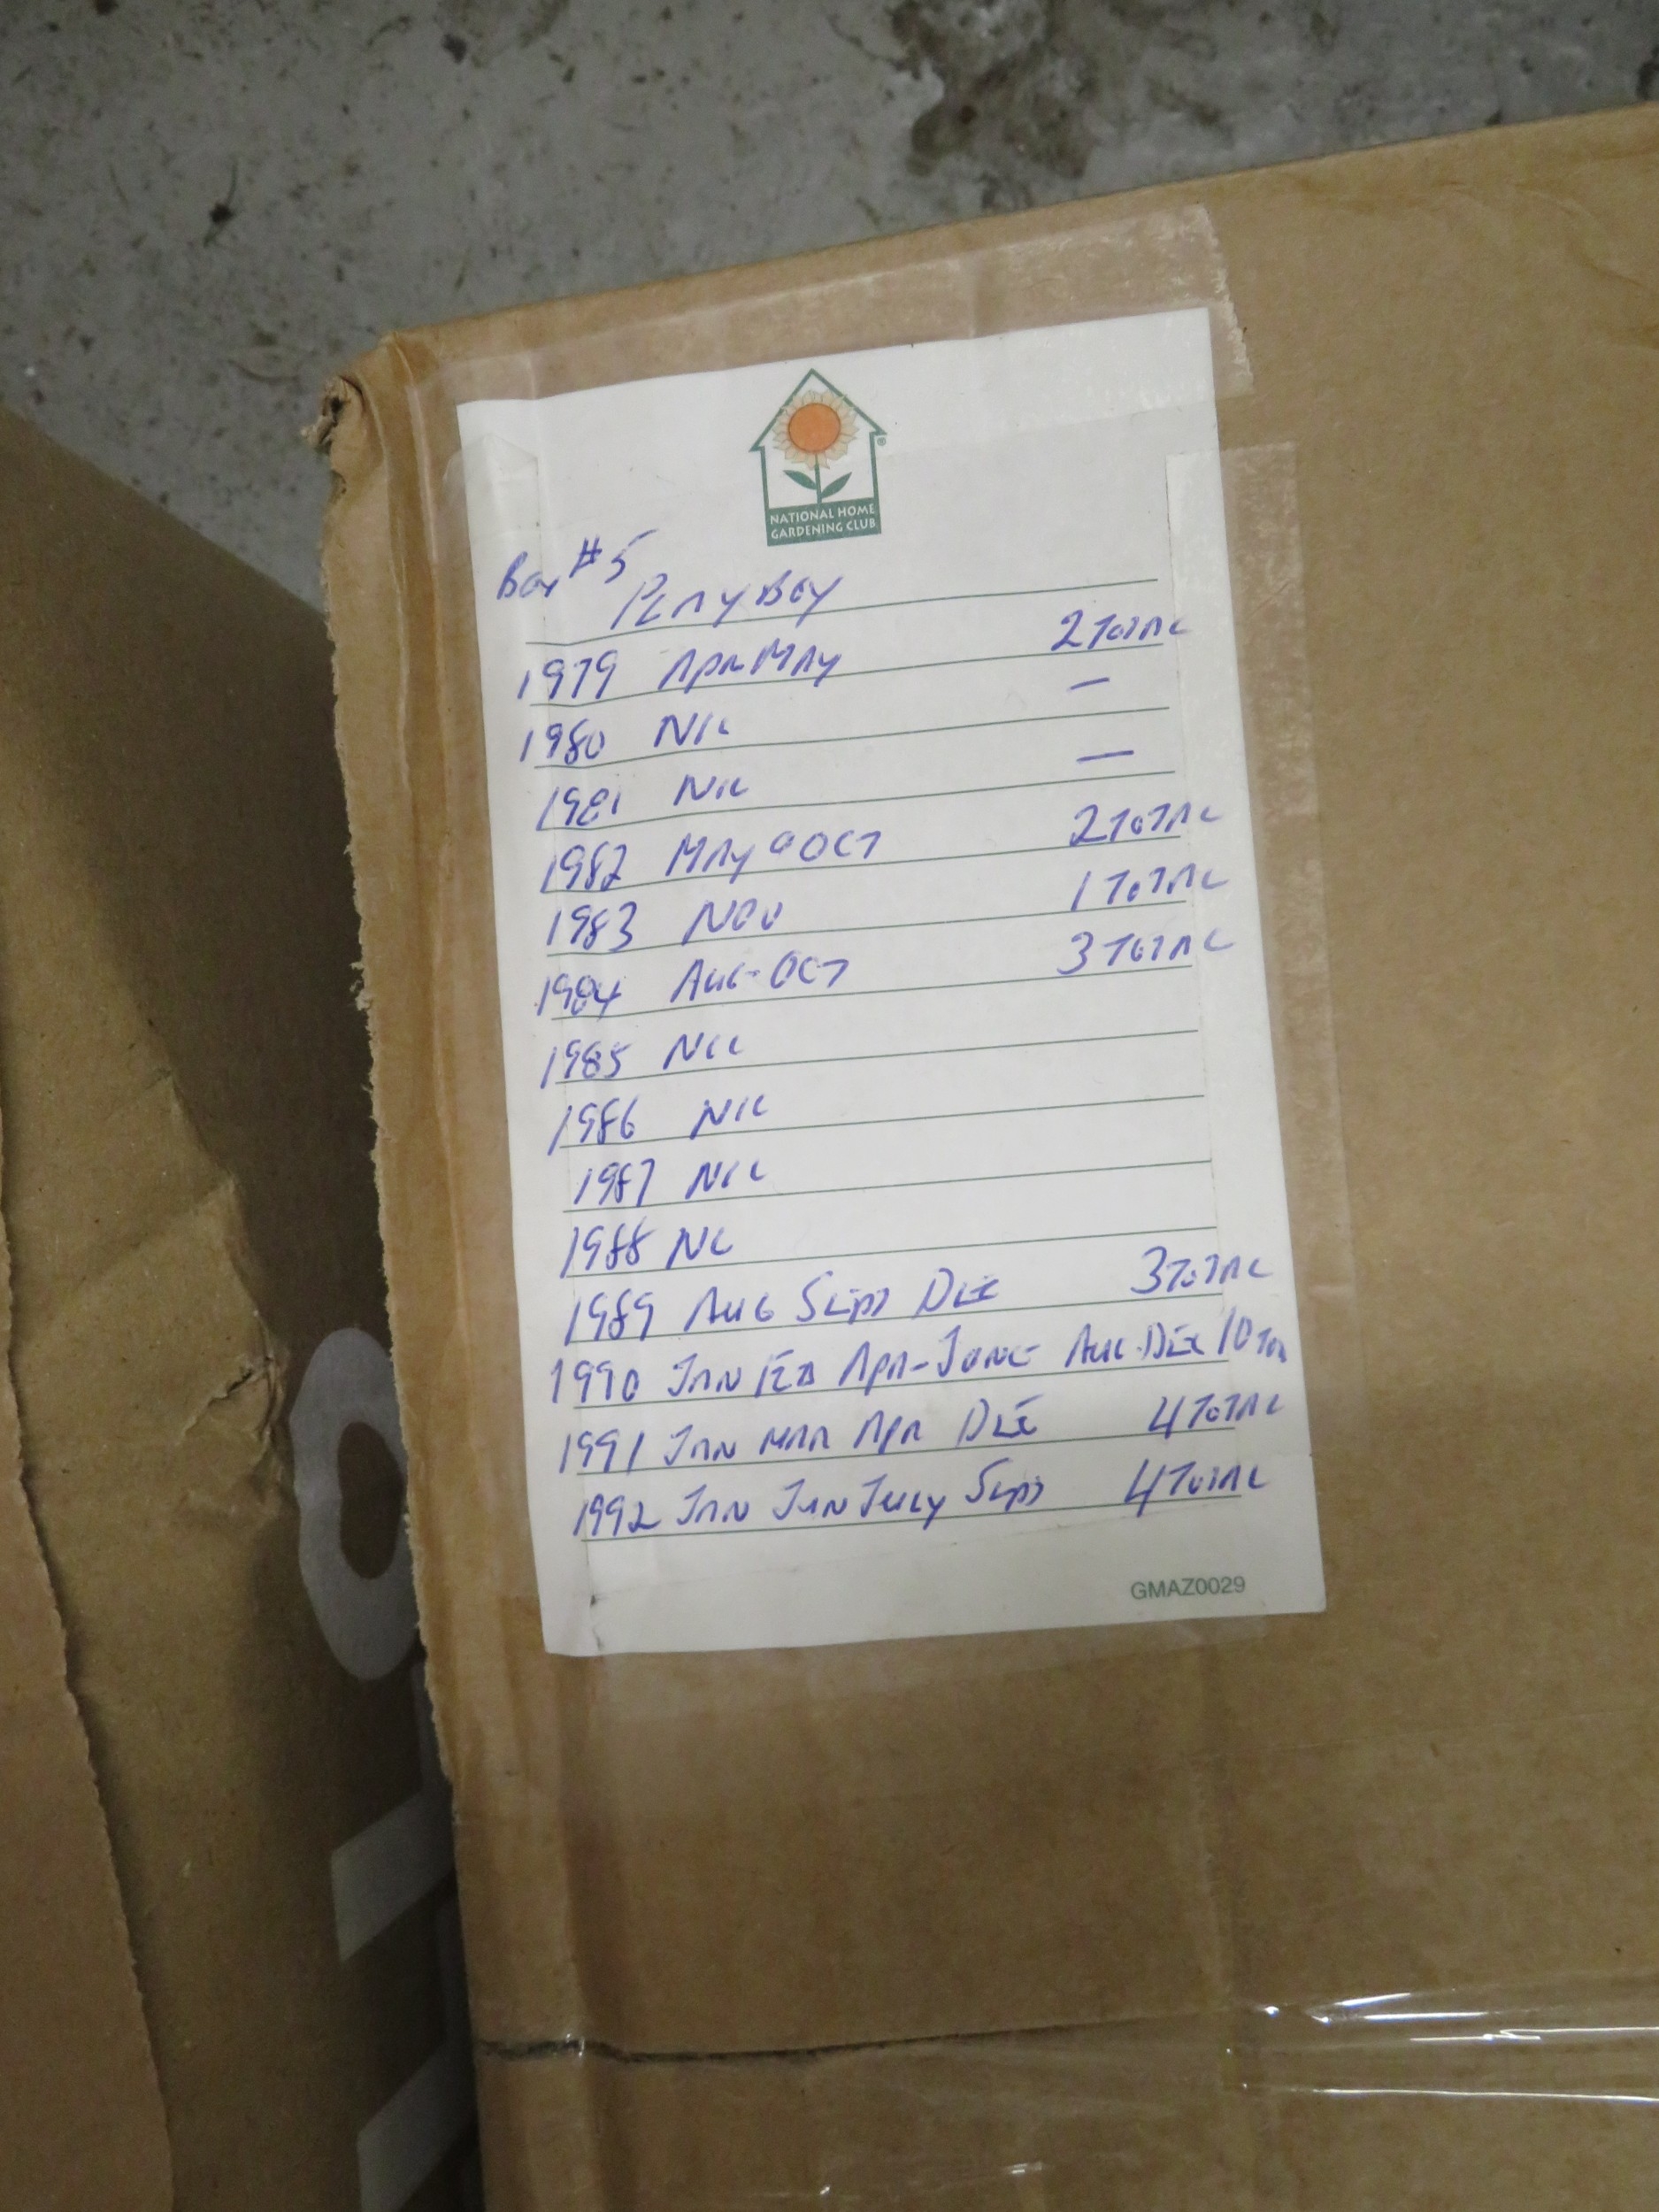 NATIONAL HOME
GARDENING CLUB
®
Box #5
PLAYBOY
1979 APR MAY 2 TOTAL
1980 NIL —
1981 NIL —
1982 MAY & OCT 2 TOTAL
1983 NOV 1 TOTAL
1984 AUG-OCT 3 TOTAL
1985 NIL
1986 NIL
1987 NIL
1988 NIL
1989 AUG SEPT DEC 3 TOTAL
1990 JAN FEB APR-JUNE AUG-DEC 10 TOTAL
1991 JAN MAR APR DEC 4 TOTAL
1992 JAN JUN JULY SEPT 4 TOTAL
GMAZ0029